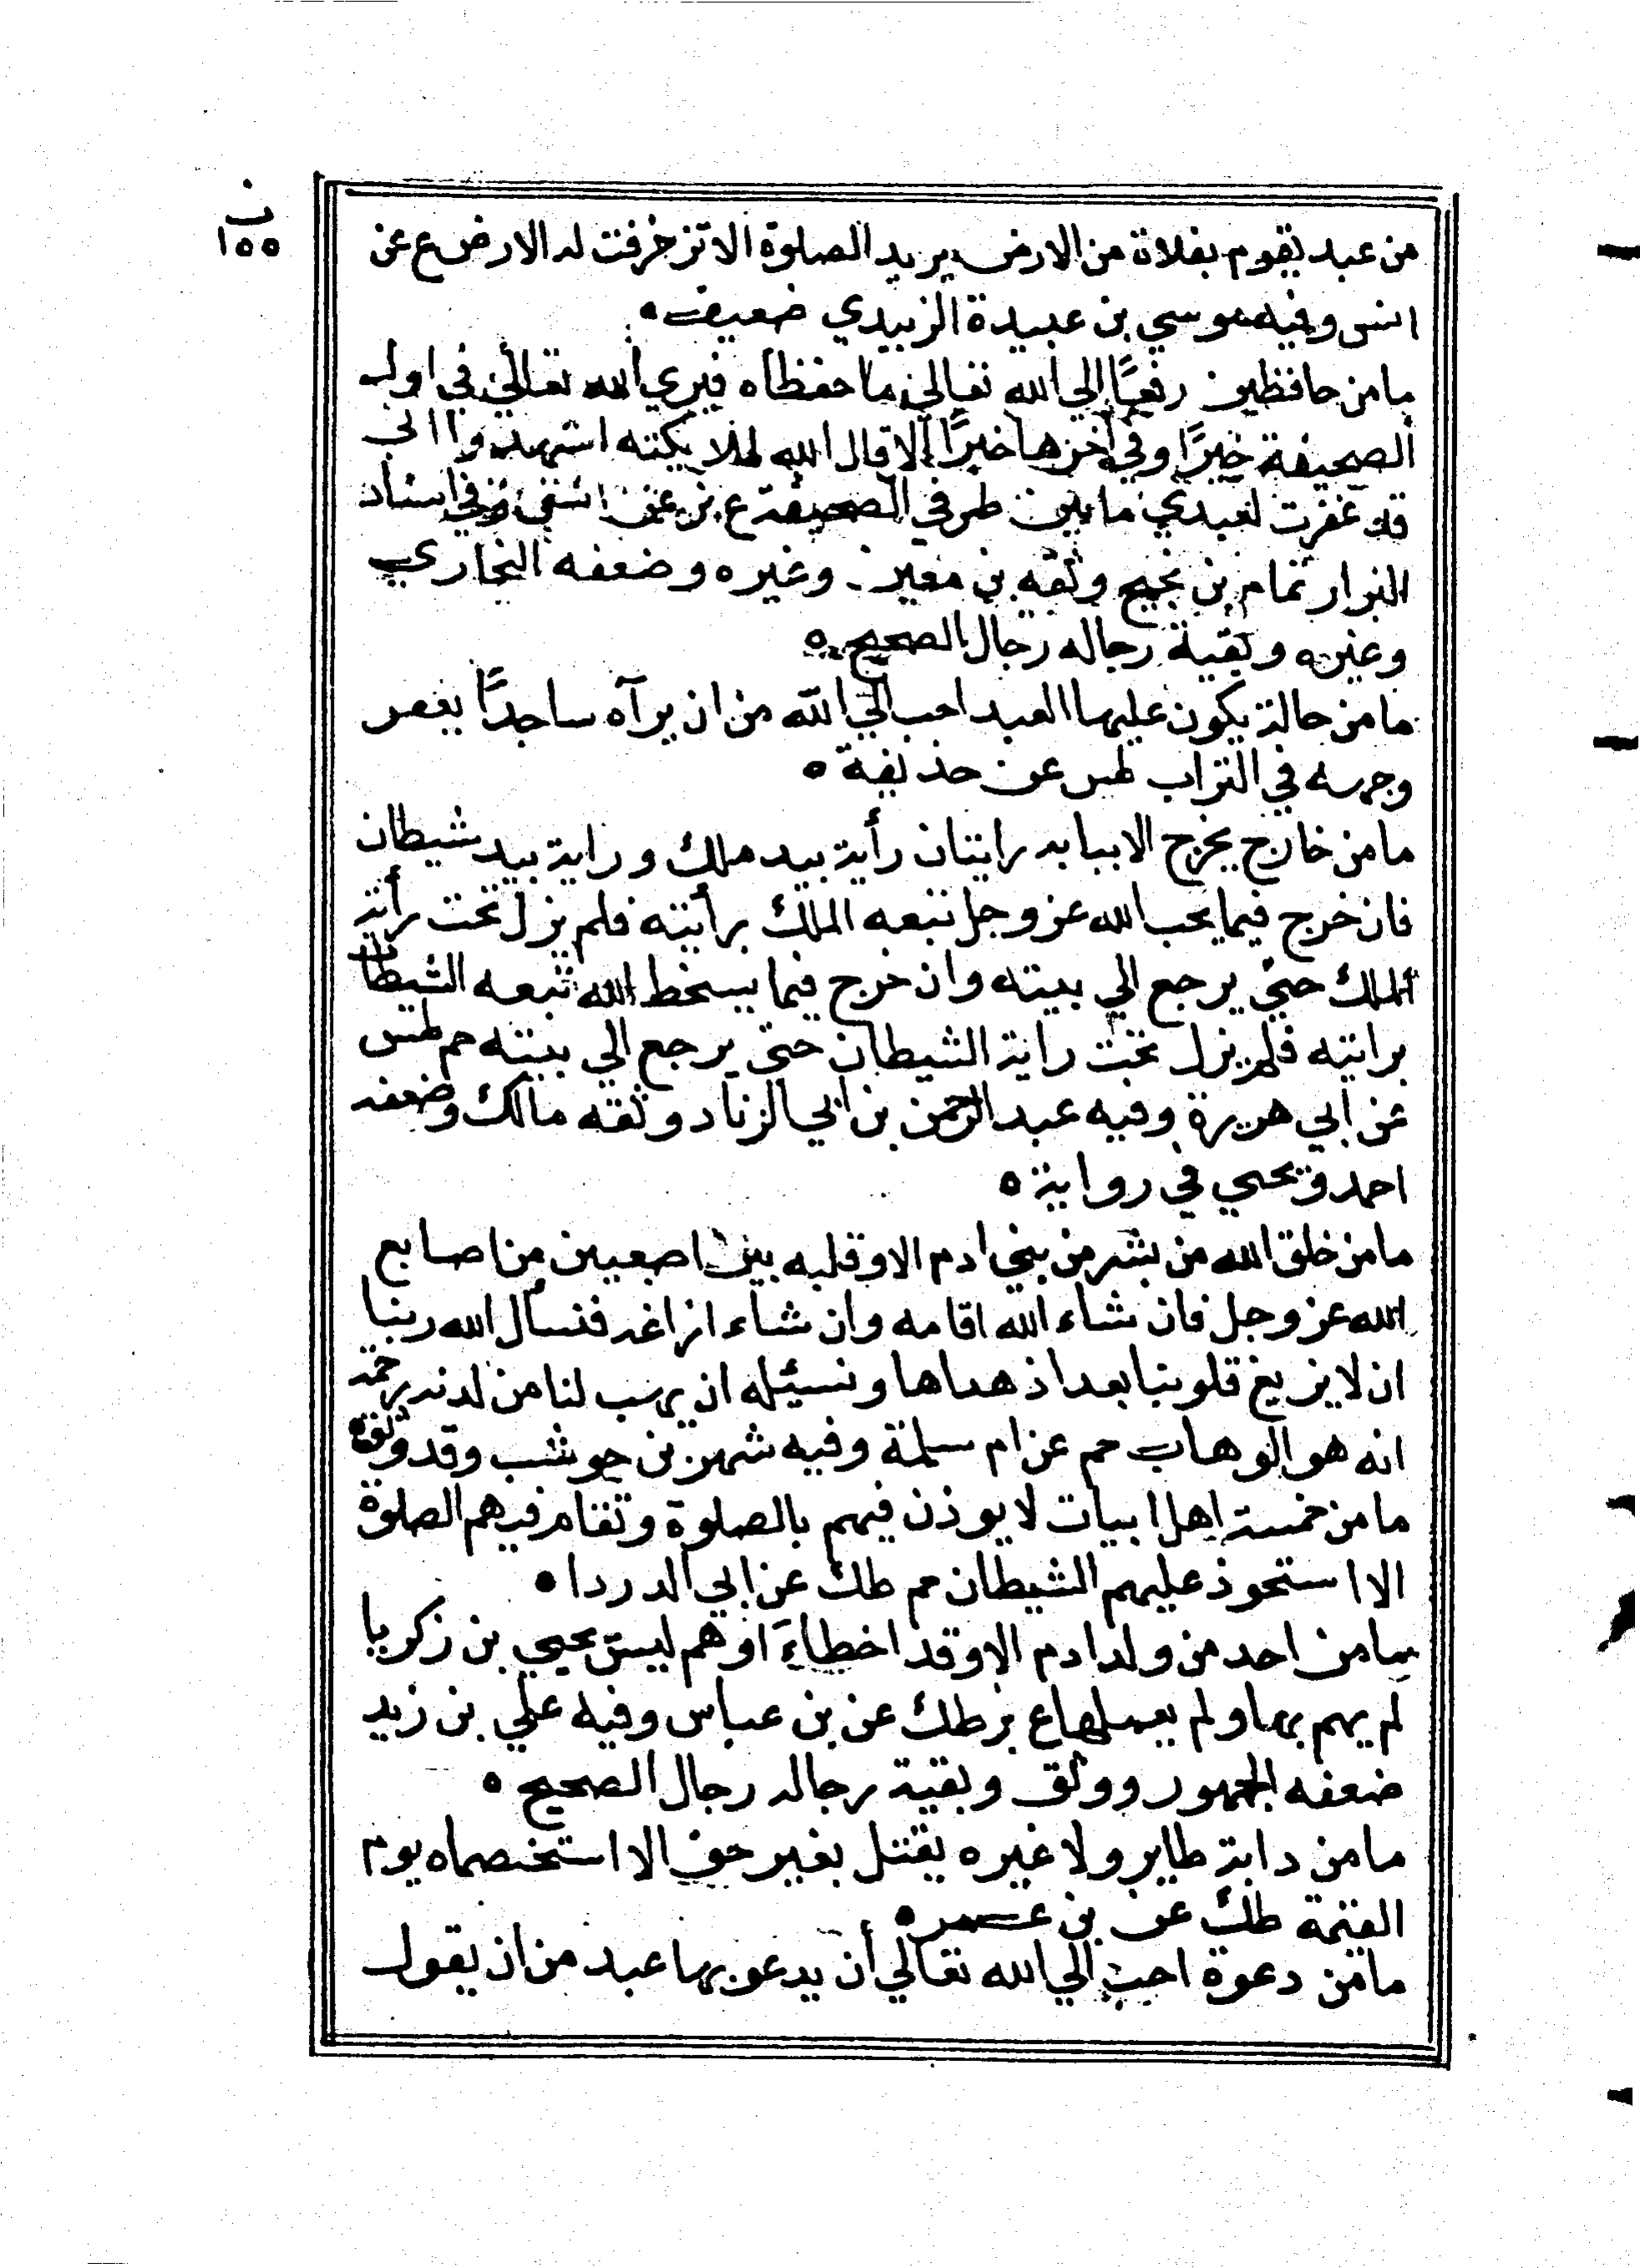 ن
١٥٥
من عبد يقوم بفلاة من الارض يريد الصلوة الا تزخرفت له الارض ع عن
انس وفيه موسي بن عبيدة الزبيدي ضعيف ٥
ما من حافظين رفعا إلي الله تعالي ما حفظاه فيري الله تعالي في اول
الصحيفة خيرًا وفي اخرها خيرًا إلا قال الله لملايكته اشهدوا اني
قد غفرت لعبدي ما بين طرفي الصحيفة ع بز عن انس وفي اسناد
البزار تمام بن نجيح وثقه بن معين وغيره وضعفه البخاري
وغيره وبقية رجاله رجال الصحيح ٥
ما من حالة يكون عليها العبد احب الي الله من ان يرآه ساجدًا يعفر
وجهه في التراب طس عن حذيفة ٥
ما من خارج يخرج الا ببابه رايتان رأية بيد ملك وراية بيد شيطان
فان خرج فيما يحب الله عز وجل تبعه الملك برأيته فلم يزل تحت رأية
الملك حتي يرجع الي بيته وان خرج فيما يسخط الله تبعه الشيطان
برايته فلم يزل تحت راية الشيطان حتى يرجع الي بيته حم طس
عن ابي هريرة وفيه عبد الرحمن بن ابي الزناد وثقه مالك وضعفه
احمد ويحيي في رواية ٥
ما من خلق الله من بشر من بني ادم الا وقلبه بين اصبعين من اصابع
الله عز وجل فان شاء الله اقامه وان شاء ازاغه فنسأل الله ربنا
ان لا يزيغ قلوبنا بعد اذ هداها ونسئله ان يهب لنا من لدنه رحمة
انه هو الوهاب حم عن ام سلمة وفيه شهر بن حوشب وقد وثق ٥
ما من خمسة اهل ابيات لا يوذن فيهم بالصلوة وتقام فيهم الصلوة
الا استحوذ عليهم الشيطان حم طك عن ابي الدرداء ٥
ما من احد من ولد ادم الا وقد اخطاء او هم ليس يحيي بن زكريا
لم يهم بها ولم يعملها ع بز طك عن بن عباس وفيه علي بن زيد
ضعفه الجمهور ووثق وبقية رجاله رجال الصحيح ٥
ما من دابة طاير ولا غيره يقتل بغير حق الا استخصماه يوم
القيمة طك عن بن عمر ٥
ما من دعوة احب إلي الله تعالي أن يدعو بها عبد من ان يقول